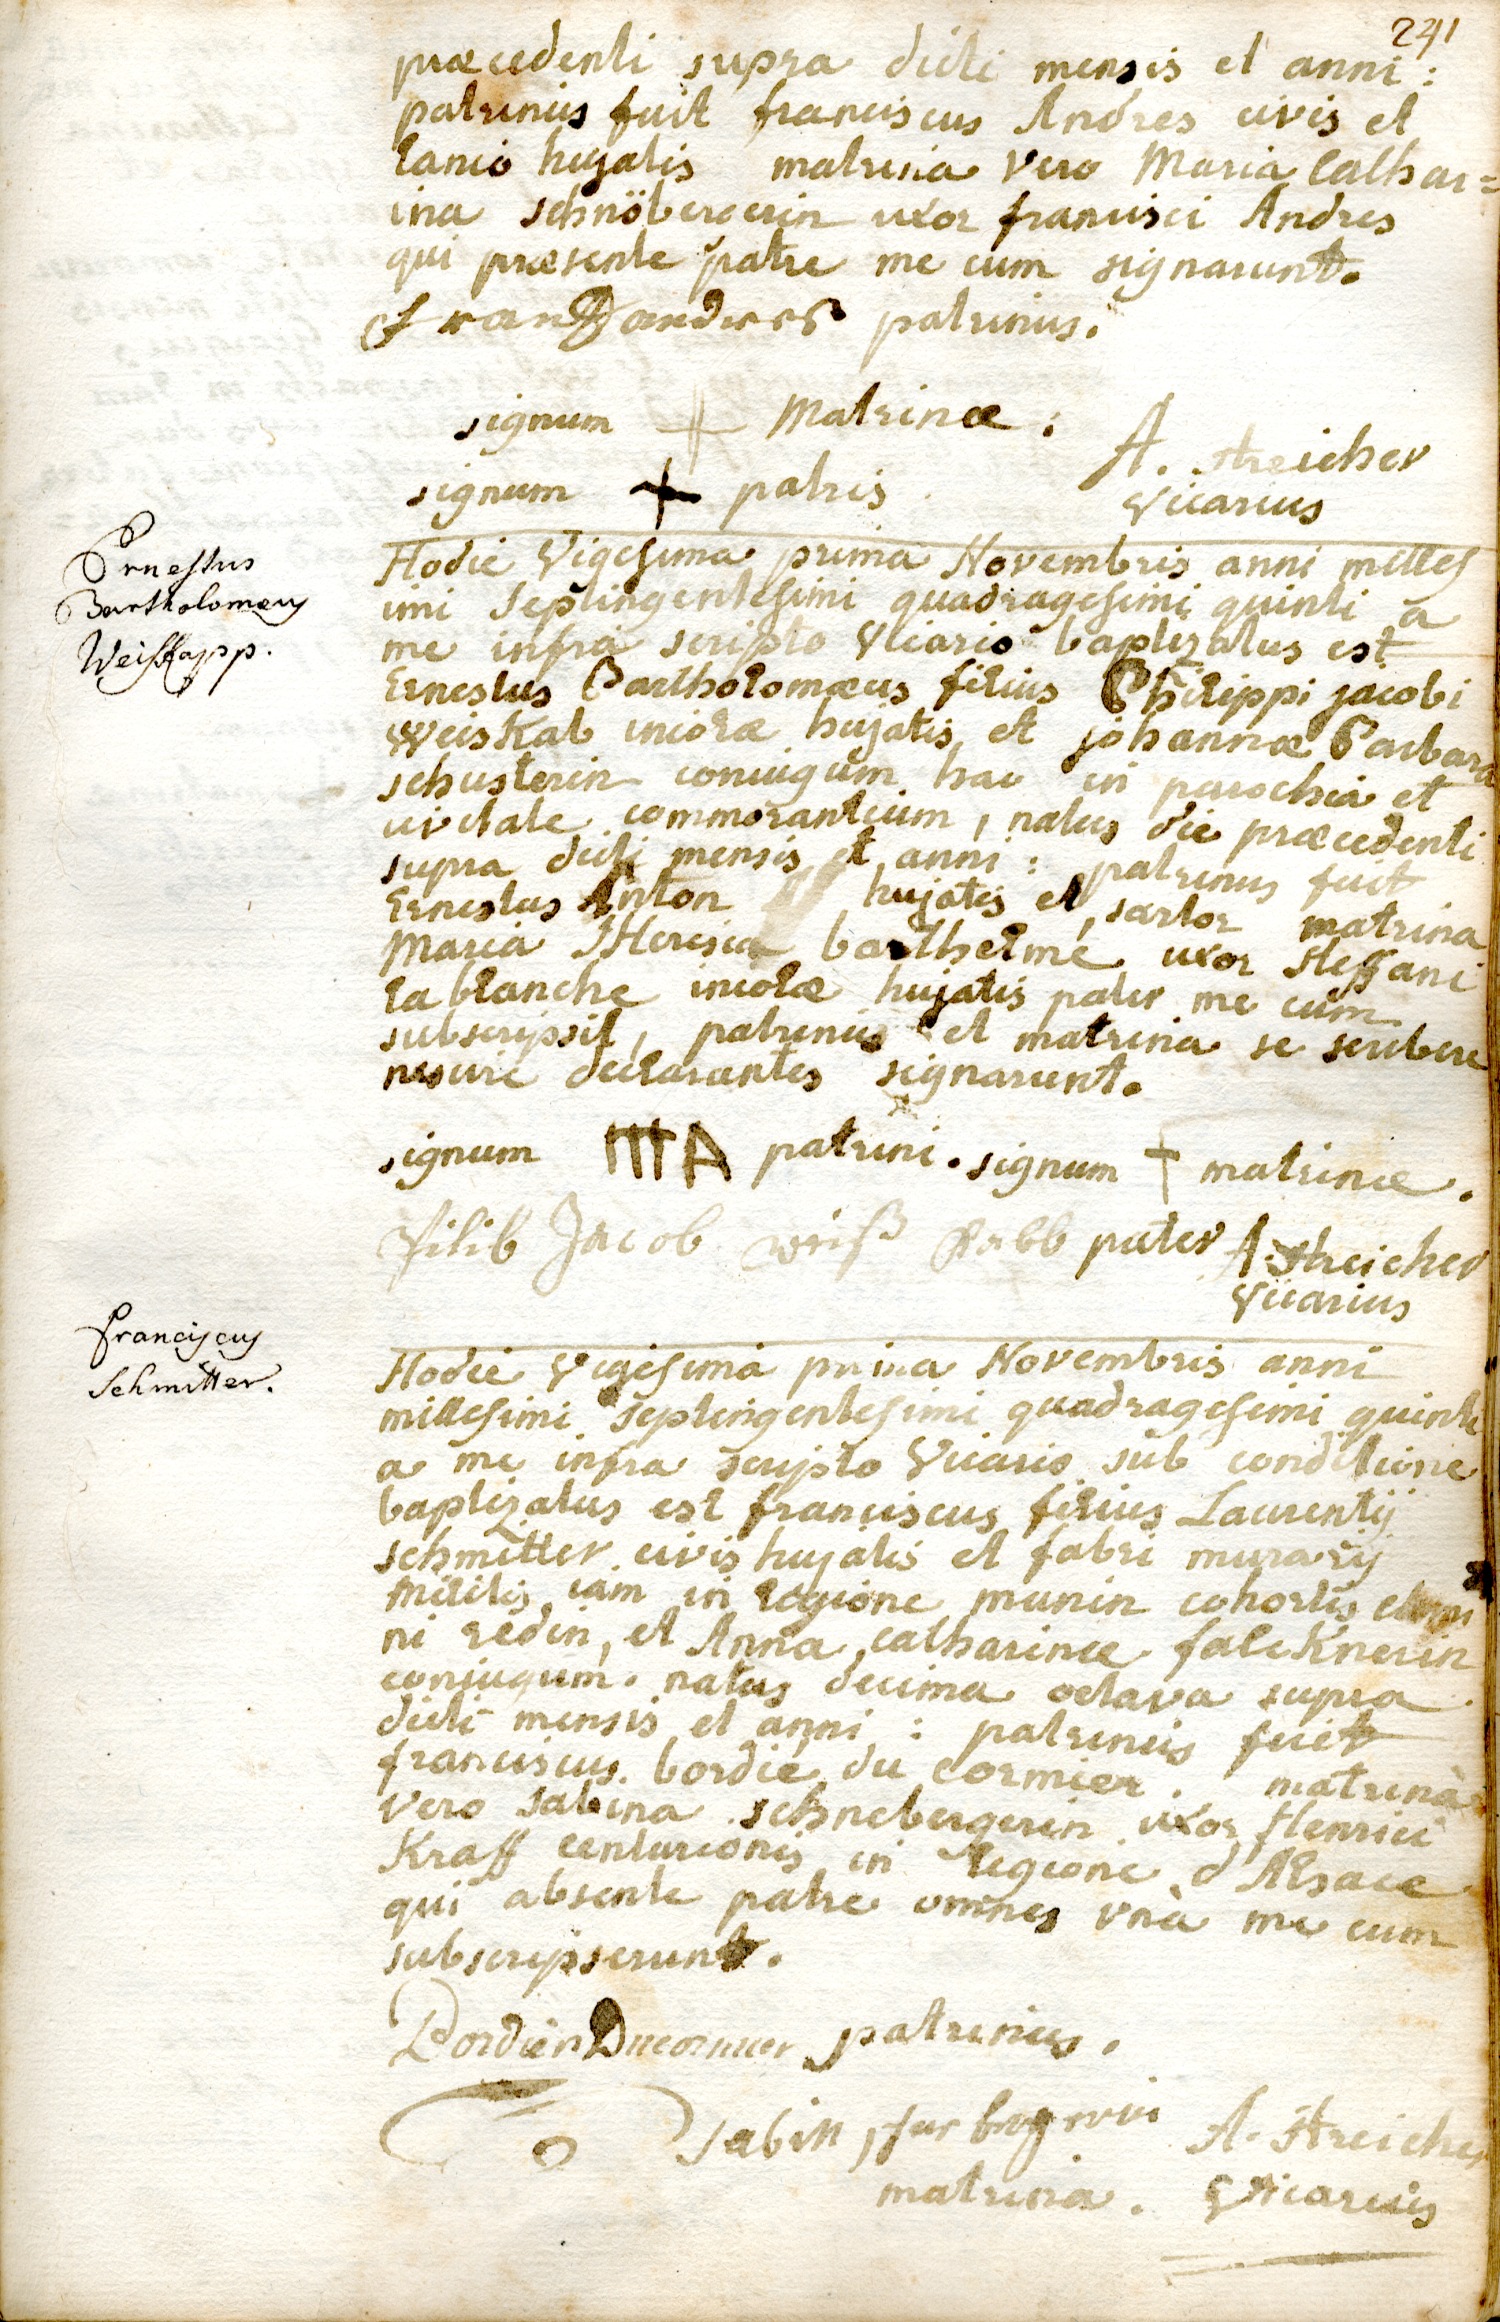 241
præcedenti supra dicti mensis et anni :
patrinus fuit franciscus Andres civis et
lanio hujatis matrina vero Maria Cathar=
ina schnöbergerin uxor francisci Andres
qui præsente patre me cum signarunt.
frantz andres patrinus.
signum + Matrinæ :
signum + patris .
A. streicher
Vicarius
Ernestus
Bartholomæus
Weisskapp.
Hodie Vigesima prima Novembris anni milles
imi septingentesimi quadragesimi quinti a
me infra scripto Vicario baptizatus est
Ernestus Bartholomæus filius Philippi jacobi
weiskab incolæ hujatis et johannæ Barbara
schusterin coniugum hac in parochia et
civitate commorantium, natus die præcedenti
supra dicti mensis et anni : patrinus fuit
Ernestus Anton hujatis et sartor matrina
Maria Theresia barthelme uxor steffani
la blanche incolæ hujatis pater me cum
subscripsit, patrinus et matrina se scribere
nescire declarantes signarunt.
signum IIIA patrini. signum + matrinæ.
filib Jacob weiß kabb pater A. streicher
Vicarius
Franciscus
Schmitter.
Hodie Vigesima prima Novembris anni
millesimi septingentesimi quadragesimi quinti
a me infra scripto Vicario sub conditione
baptizatus est franciscus filius Laurentij
schmitter civis hujatis et fabri murarij
militis iam in legione munin cohortis
ni redin, et Anna catharinæ falcknerin
conjugum. natus decima octava supra
dicti mensis et anni : patrinus fuit
franciscus bordie du cormier. matrina
vero sabina schnebergerin uxor Henrici
Kraff centurionis in legione d'Alsace
qui absente patre omnes vnà me cum
subscripserunt.
Bordier Ducormier patrinus.
sabin
matrina.
A. streicher
Vicarius